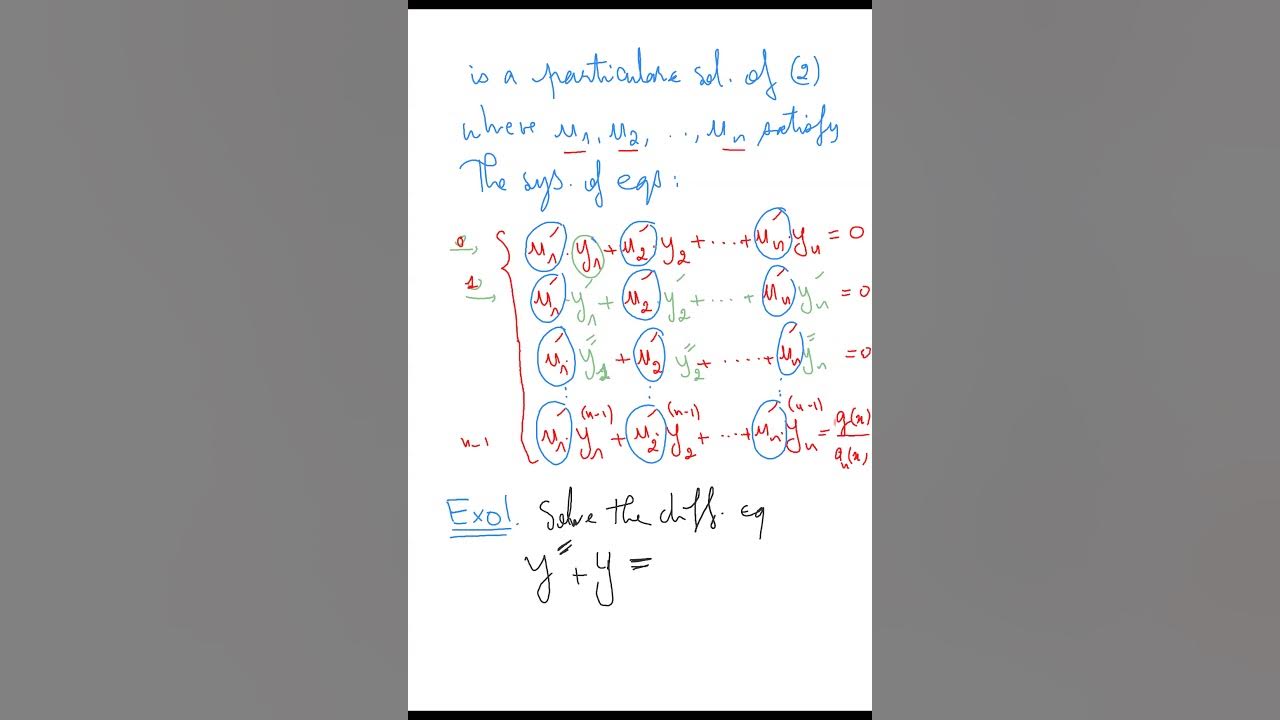 is a particulare sol. of (2)
where u₁, u₂, ..., uₙ satisfy
The sys. of eqs:
0 u₁′·y₁ + u₂′·y₂ + ... + uₙ′·yₙ = 0
1 u₁′·y₁′ + u₂′ y₂′ + ... + uₙ′ yₙ′ = 0
u₁′ y₁″ + u₂′ y₂″ + .... + uₙ′ yₙ″ = 0
n-1 u₁′·y₁⁽ⁿ⁻¹⁾ + u₂′·y₂⁽ⁿ⁻¹⁾ + ... + uₙ′·yₙ⁽ⁿ⁻¹⁾ = g(x)/aₙ(x)
Exo1. Solve the diff. eq
y″ + y =